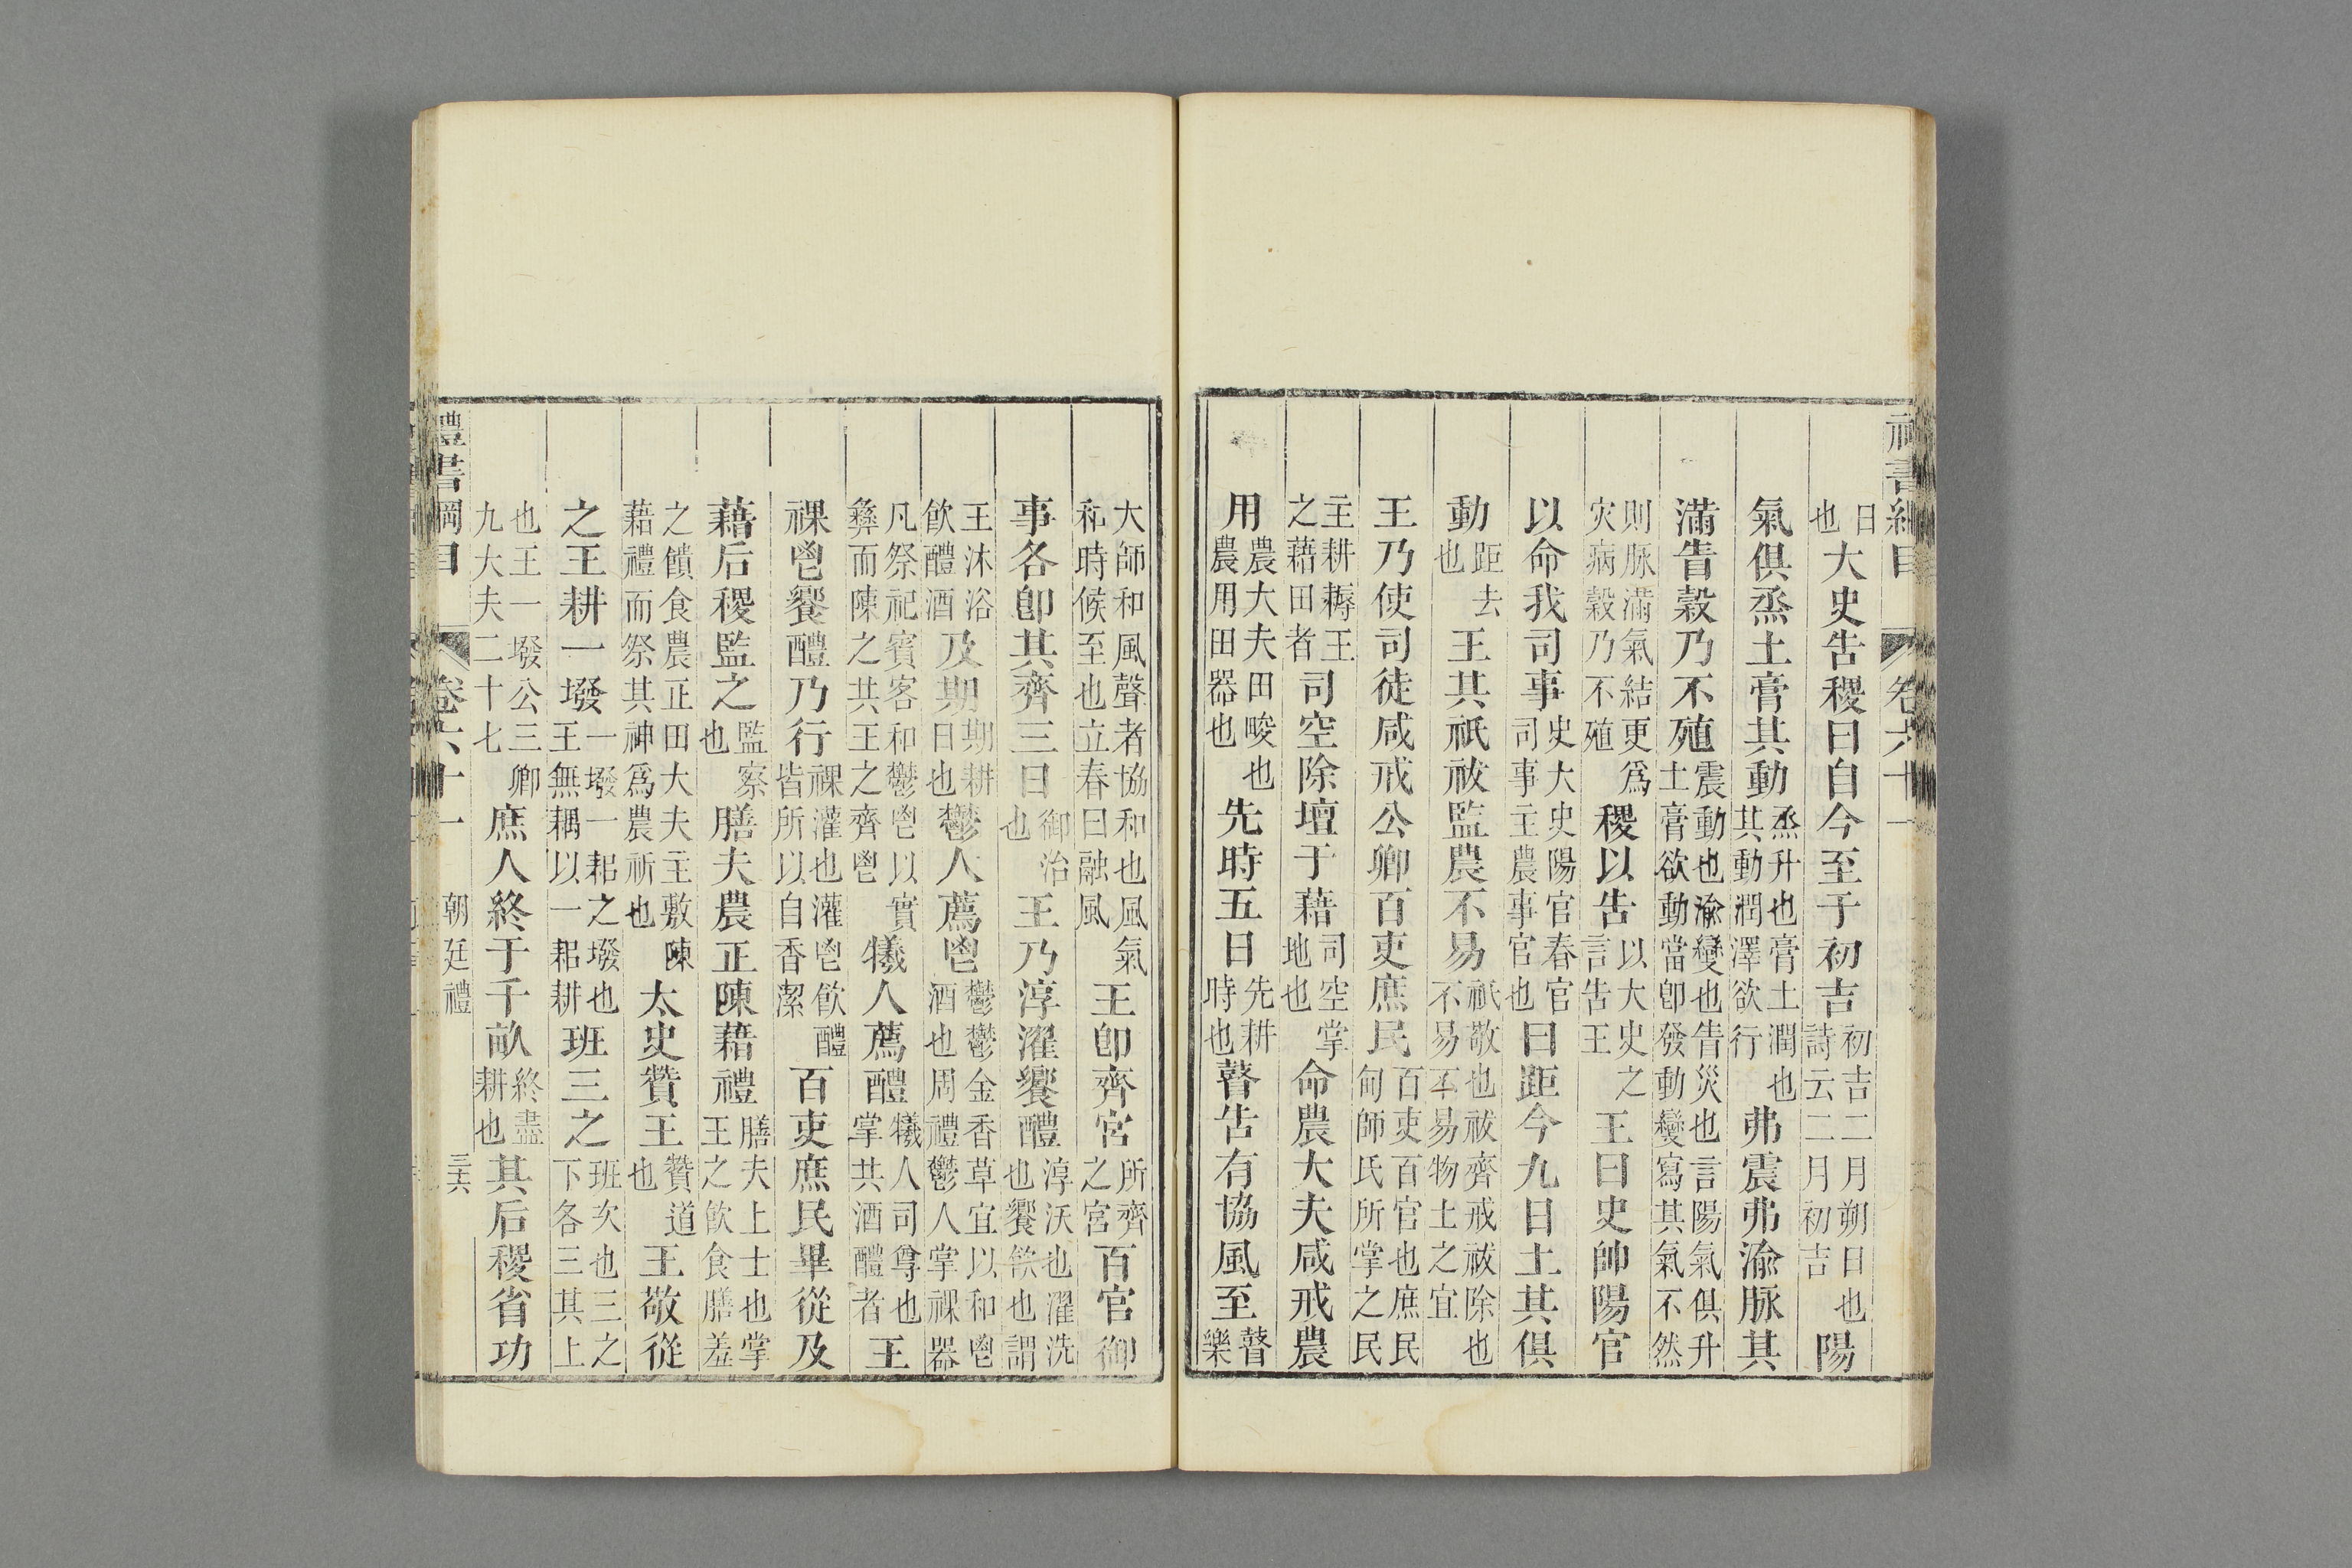 禮書綱目 卷六十一
日也大史告稷曰自今至于初吉初吉二月朔日也詩云二月初吉陽
氣俱烝土膏其動烝升也膏土潤也其動潤澤欲行弗震弗渝脉其
滿眚穀乃不殖震動也渝變也眚災也言陽氣俱升土膏欲動當卽發動變寫其氣不然
則脉滿氣結更爲灾病穀乃不殖稷以告以大史之言告王王曰史帥陽官
以命我司事史大史陽官春官司事主農事官也曰距今九日土其俱
動距去也王其祇祓監農不易祇敬也祓齊戒祓除也不易不易物土之宜
王乃使司徒咸戒公卿百吏庶民百吏百官也庶民甸師氏所掌之民
主耕耨王之藉田者司空除壇于藉司空掌地也命農大夫咸戒農
用農大夫田畯也農用田器也先時五日先耕時也瞽告有協風至瞽樂
大師和風聲者協和也風氣和時候至也立春曰融風王卽齊宮所齊之宮百官御
事各卽其齊三日御治也王乃淳濯饗醴淳沃也濯洗也饗飮也謂
王沐浴飮醴酒及期期耕日也鬱人薦鬯鬱鬱金香草宜以和鬯酒也周禮鬱人掌祼器
凡祭祀賓客和鬱鬯以實彝而陳之共王之齊鬯犧人薦醴犧人司尊也掌共酒醴者王
祼鬯饗醴乃行祼灌也灌鬯飮醴皆所以自香潔百吏庶民畢從及
藉后稷監之監察也膳夫農正陳藉禮膳夫上士也掌王之飮食膳羞
之饋食農正田大夫主敷陳藉禮而祭其神爲農祈也太史贊王贊道也王敬從
之王耕一墢一墢一耜之墢也王無耦以一耜耕班三之班次也三之下各三其上
也王一墢公三卿九大夫二十七庶人終于千畝終盡耕也其后稷省功
禮書綱目 卷六十一 朝廷禮 三六